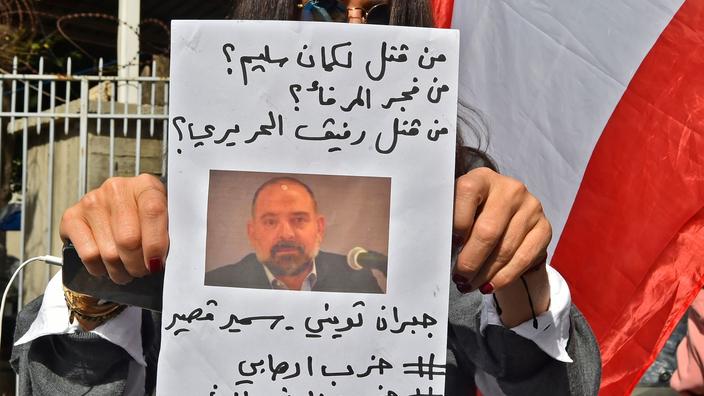 من قتل لكمان سليم؟
من فجر المرفأ؟
من قتل رفيق الحريري؟
جبران تويني - سمير قصير
# حزب ارهابي